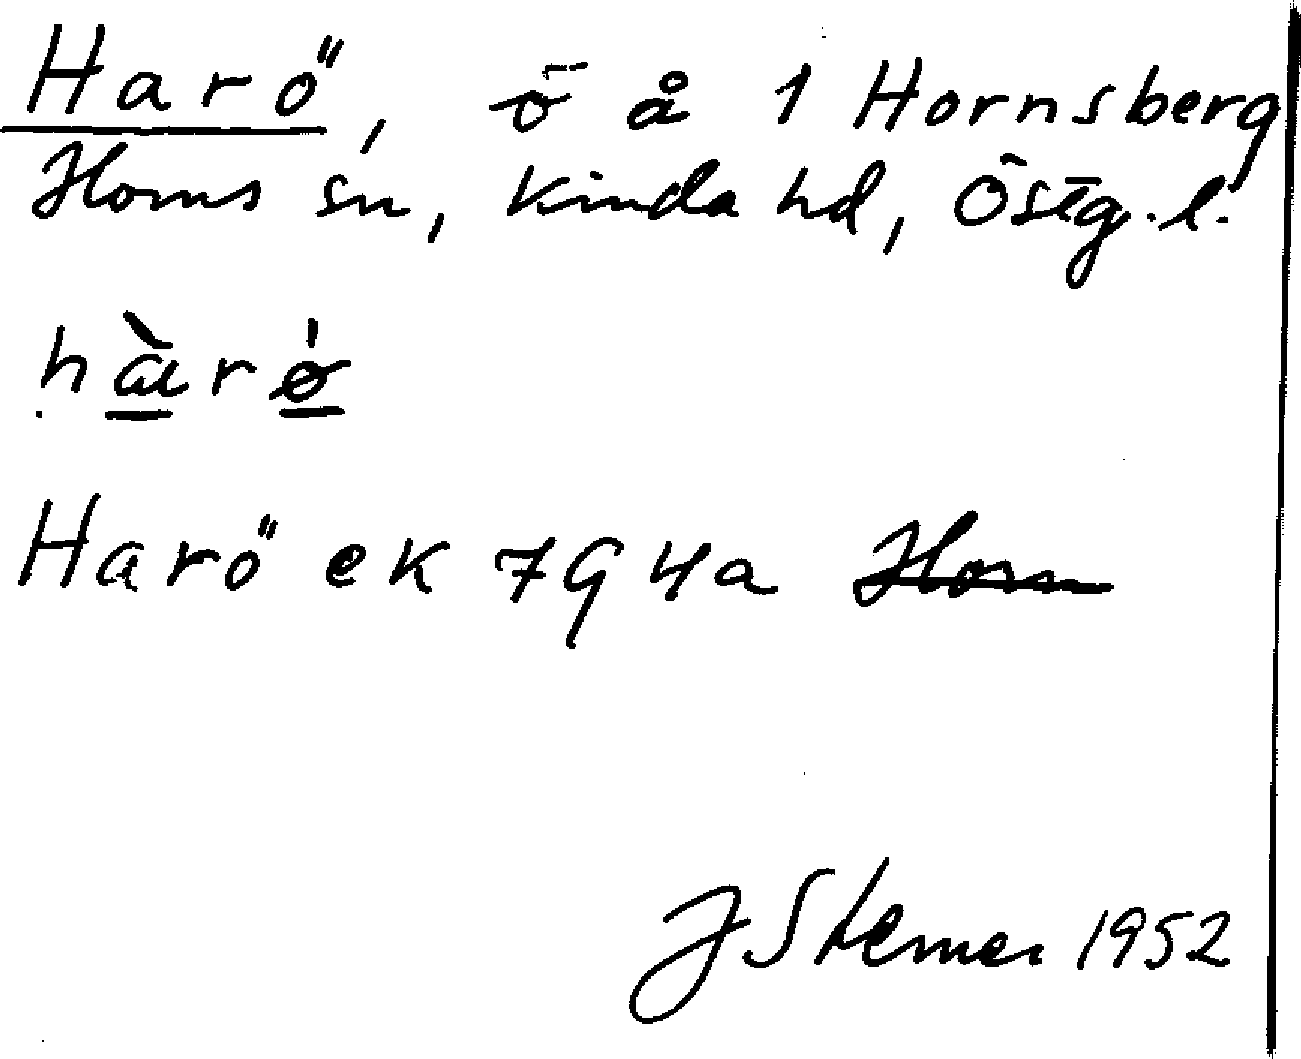 Harö, ö å 1 Hornsberg
Horns sn, Kinda hd, Östg.l.
hàrø̀
Harö ek 7G 4a Horn
J Sterner 1952